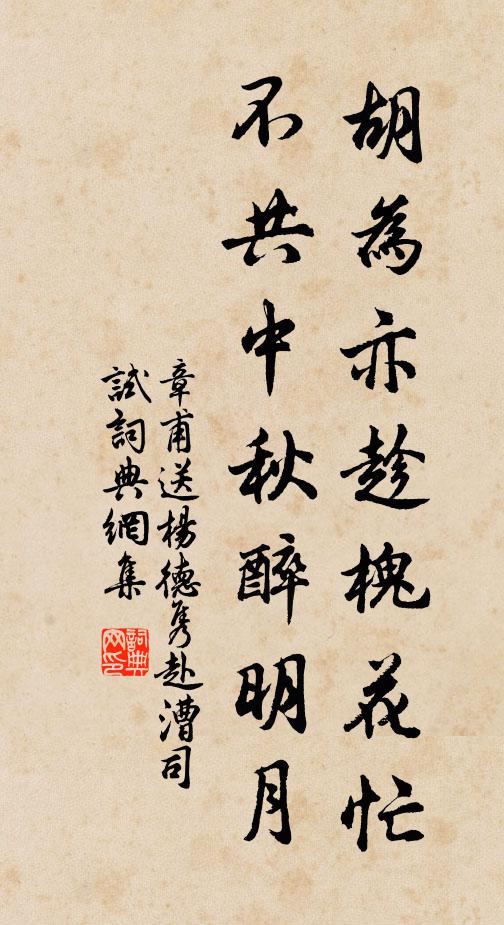 胡為亦趁槐花忙
不共中秋醉明月
章甫送楊德雋赴漕司
試詞典網集
詞典网印